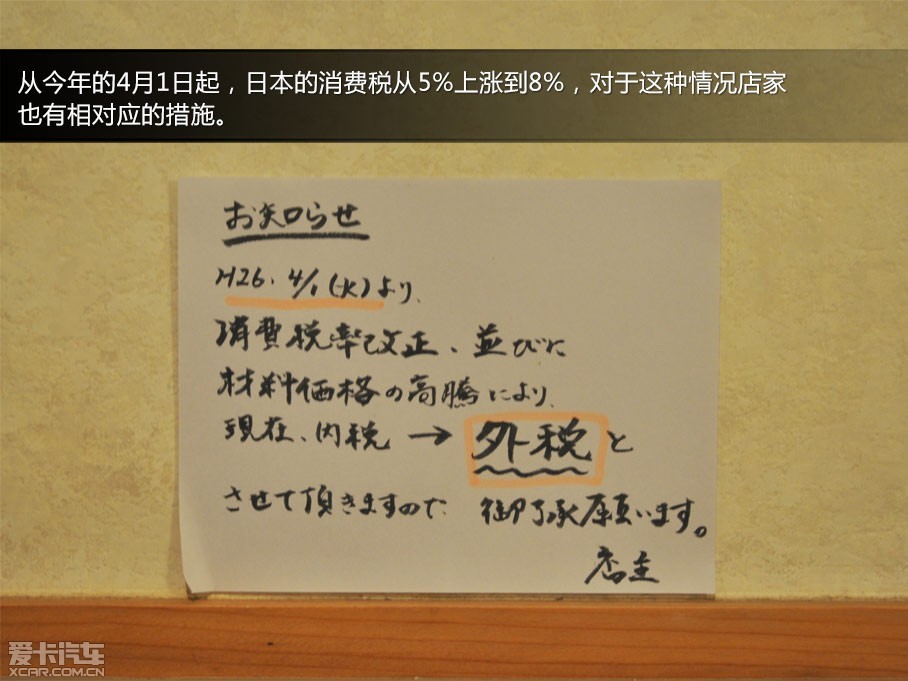 从今年的4月1日起，日本的消费税从5%上涨到8%，对于这种情况店家
也有相对应的措施。
お知らせ
H26. 4/1(火)より、
消費税率改正、並びに
材料価格の高騰により、
現在、内税→外税と
させて頂きますので 御了承願います。
店主
爱卡汽车
XCAR.COM.CN